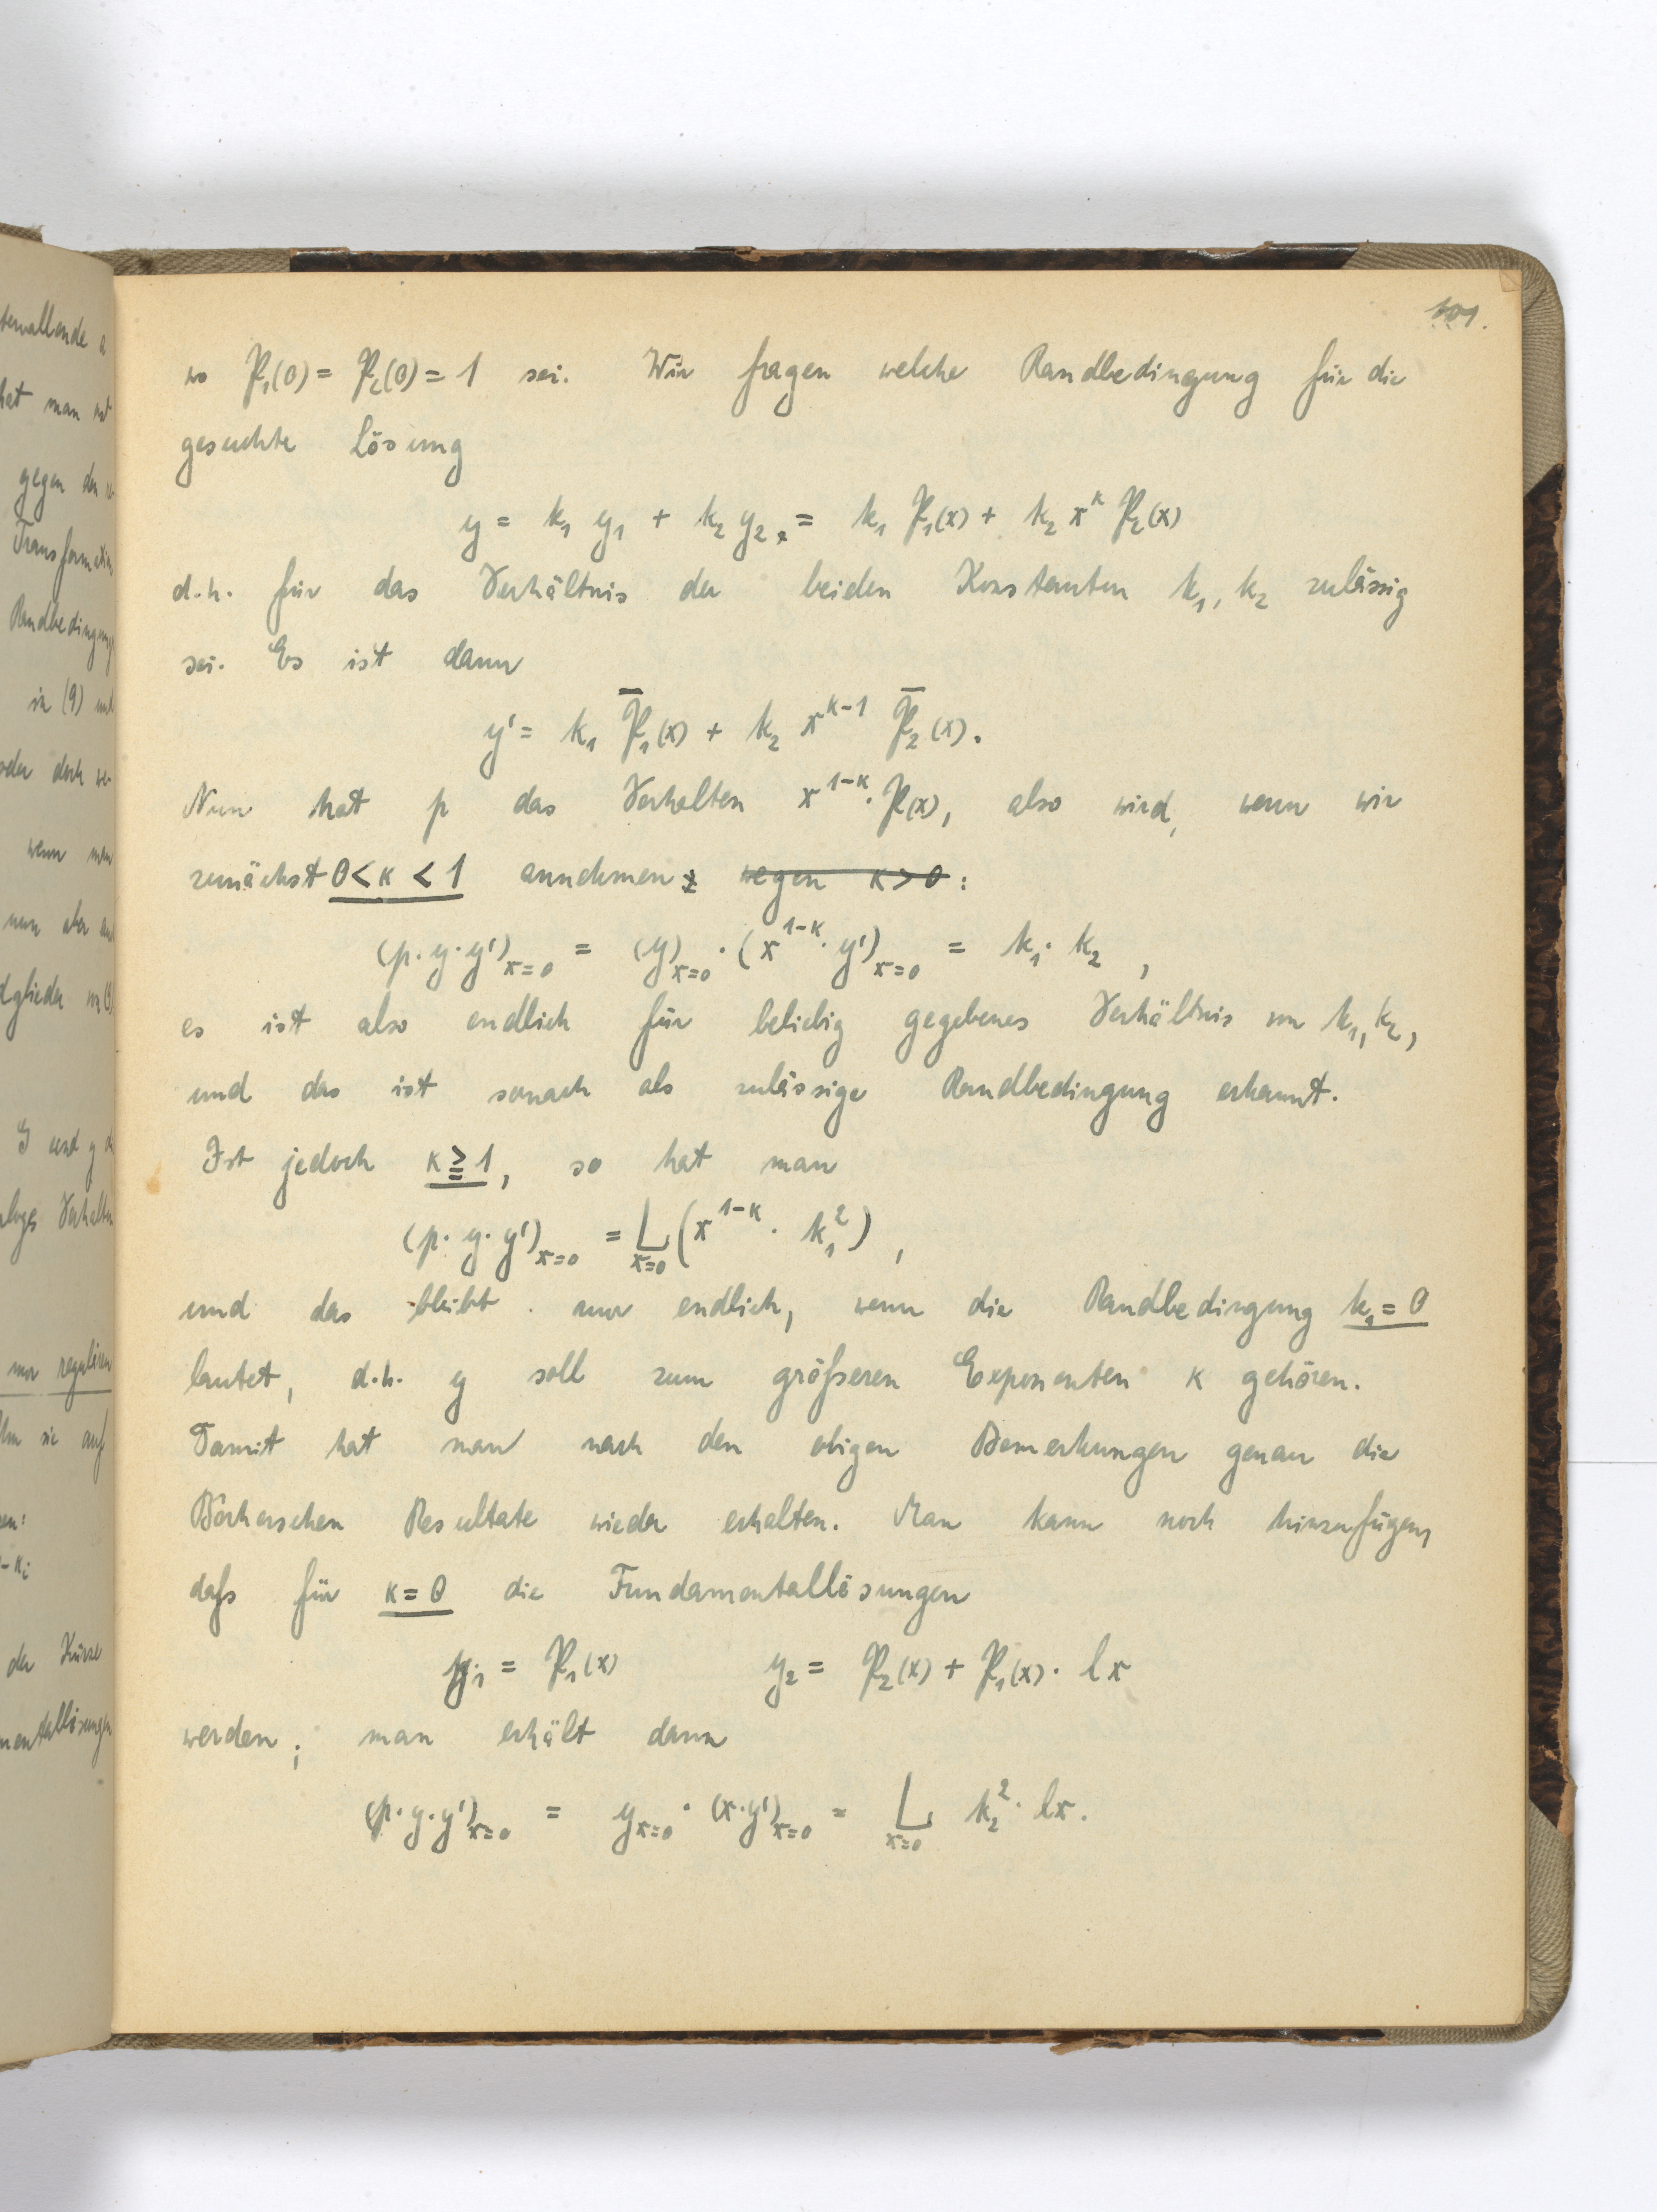 101.
wo P₁(0) = P₂(0) = 1 sei. Wir fragen welche Randbedingung für die
gesuchte Lösung
y = k₁ y₁ + k₂ y₂ = k₁ P₁(x) + k₂ x^κ P₂(x)
d.h. für das Verhältnis der beiden Konstanten k₁, k₂ zulässig
sei. Es ist dann
y' = k₁ P̄₁(x) + k₂ x^{κ-1} P̄₂(x).
Nun hat p das Verhalten x^{1-κ}·P(x), also wird, wenn wir
zunächst 0 < κ < 1 annehmen wegen κ > 0 :
(p·y·y')_{x=0} = (y)_{x=0} · (x^{1-κ}·y')_{x=0} = k₁·k₂ ,
es ist also endlich für beliebig gegebenes Verhältnis von k₁, k₂,
und das ist sonach als zulässige Randbedingung erkannt.
Ist jedoch κ ≧ 1, so hat man
(p·y·y')_{x=0} = L_{x=0} (x^{1-κ} · k₁²) ,
und das bleibt nur endlich, wenn die Randbedingung k₁ = 0
lautet, d.h. y soll zum größeren Exponenten κ gehören.
Damit hat man nach den obigen Bemerkungen genau die
Bôcherschen Resultate wieder erhalten. Man kann noch hinzufügen,
daß für κ = 0 die Fundamentallösungen
y₁ = P₁(x) y₂ = P₂(x) + P₁(x) · lx
werden; man erhält dann
(p·y·y')_{x=0} = y_{x=0} · (x·y')_{x=0} = L_{x=0} k₂² · lx.
tervallende a
hat man
gegen den
Transformation
Randbedingung
in (9) und
oder doch
wenn man
nun aber
dglieder
G und y
aloges Verhalten
nur regulären
sie auf
en:
-κ_i
der Kürze
mentallösungen